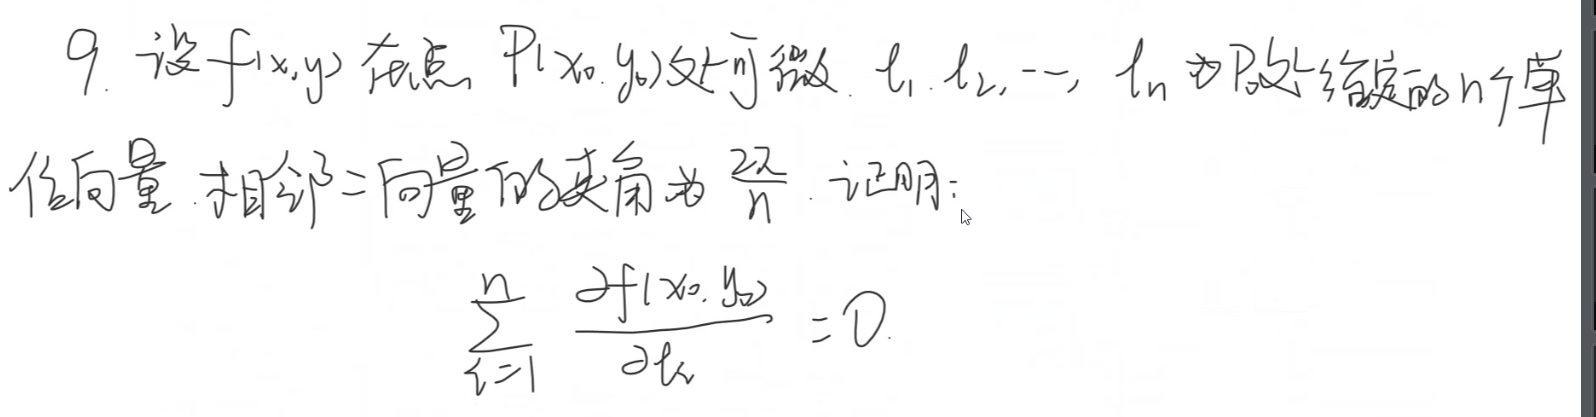 9. 设f(x,y)在点P(x₀,y₀)处可微. l₁.l₂,--, lₙ为P₀处给定的n个单
位向量.相邻二向量的夹角为2π/n.证明:
∑ⁿᵢ₌₁ ∂f(x₀.y₀)/∂lᵢ =0.